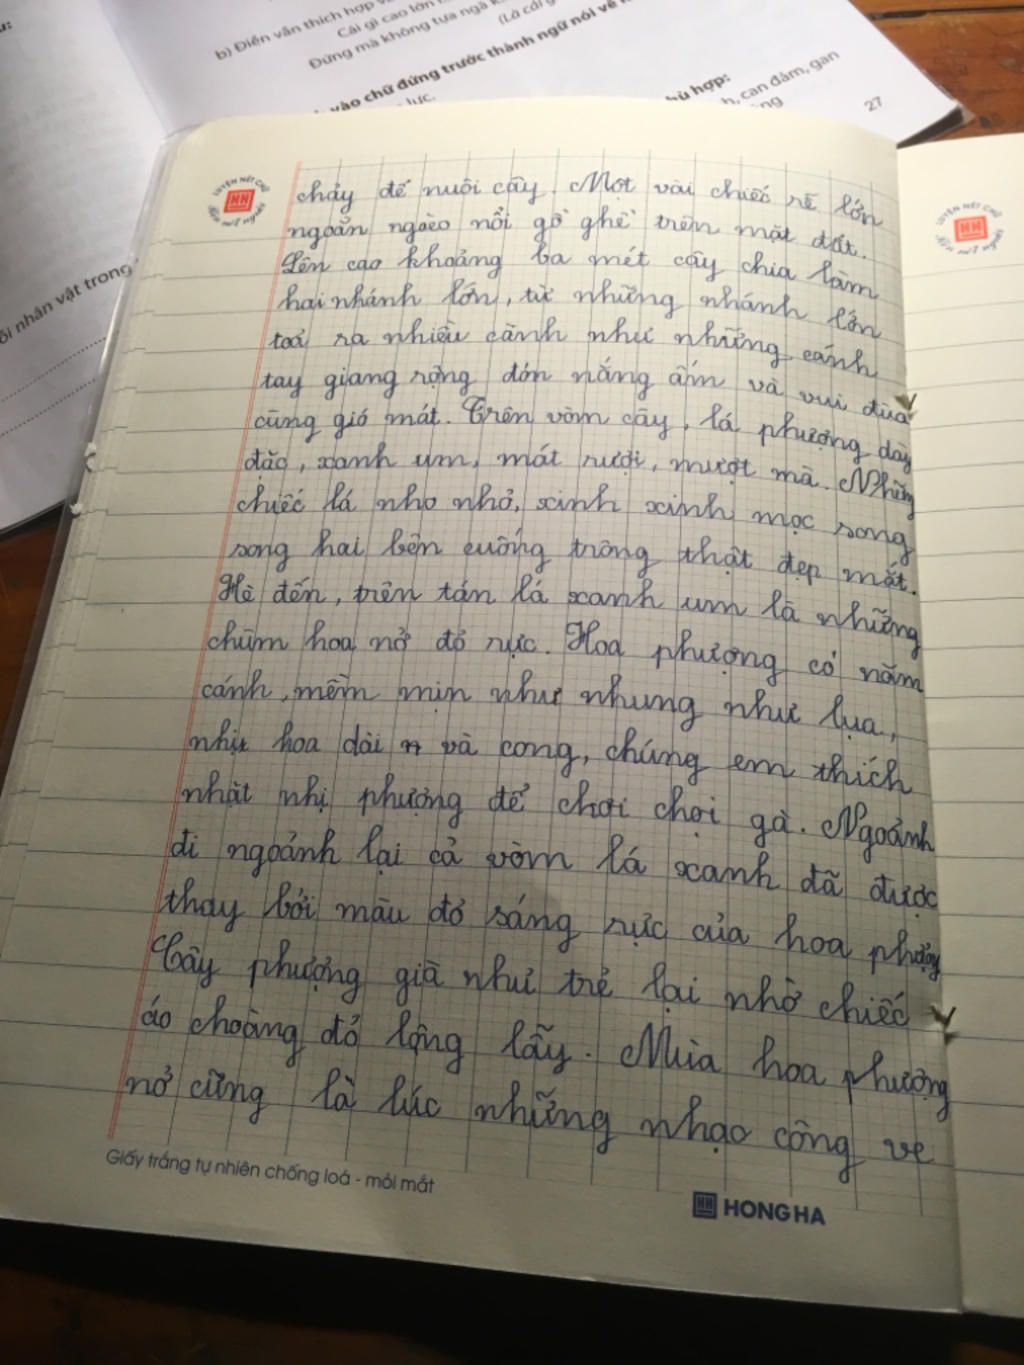 b) Điền vần thích hợp
Cái gì cao lớn
Đứng mà không tựa ngã
(Là cái
vào chữ đứng trước thành ngữ nói về
lực.
hù hợp:
h, can đảm, gan
ng
27
ồi nhân vật trong
LUYỆN NÉT CHỮ
Rèn nết người
LUYỆN NÉT CHỮ
Rèn nết người
chảy để nuôi cây. Một vài chiếc rễ lớn
ngoằn ngoèo nổi gồ ghề trên mặt đất.
Lên cao khoảng ba mét cây chia làm
hai nhánh lớn, từ những nhánh lớn
toả ra nhiều cành như những cánh
tay giang rộng đón nắng ấm và vui đùa
cùng gió mát. Trên vòm cây, lá phượng dày
đặc, xanh um, mát rượi, mượt mà. Những
chiếc lá nho nhỏ, xinh xinh mọc song
song hai bên cuống trông thật đẹp mắt.
Hè đến, trên tán lá xanh um là những
chùm hoa nở đỏ rực. Hoa phượng có năm
cánh, mềm mịn như nhung như lụa,
nhị hoa dài và cong, chúng em thích
nhặt nhị phượng để chơi chọi gà. Ngoảnh
đi ngoảnh lại cả vòm lá xanh đã được
thay bởi màu đỏ sáng rực của hoa phượng
Cây phượng già như trẻ lại nhờ chiếc
áo choàng đỏ lộng lẫy. Mùa hoa phượng
nở cũng là lúc những nhạc công ve
Giấy trắng tự nhiên chống loá - mỏi mắt
HONG HA